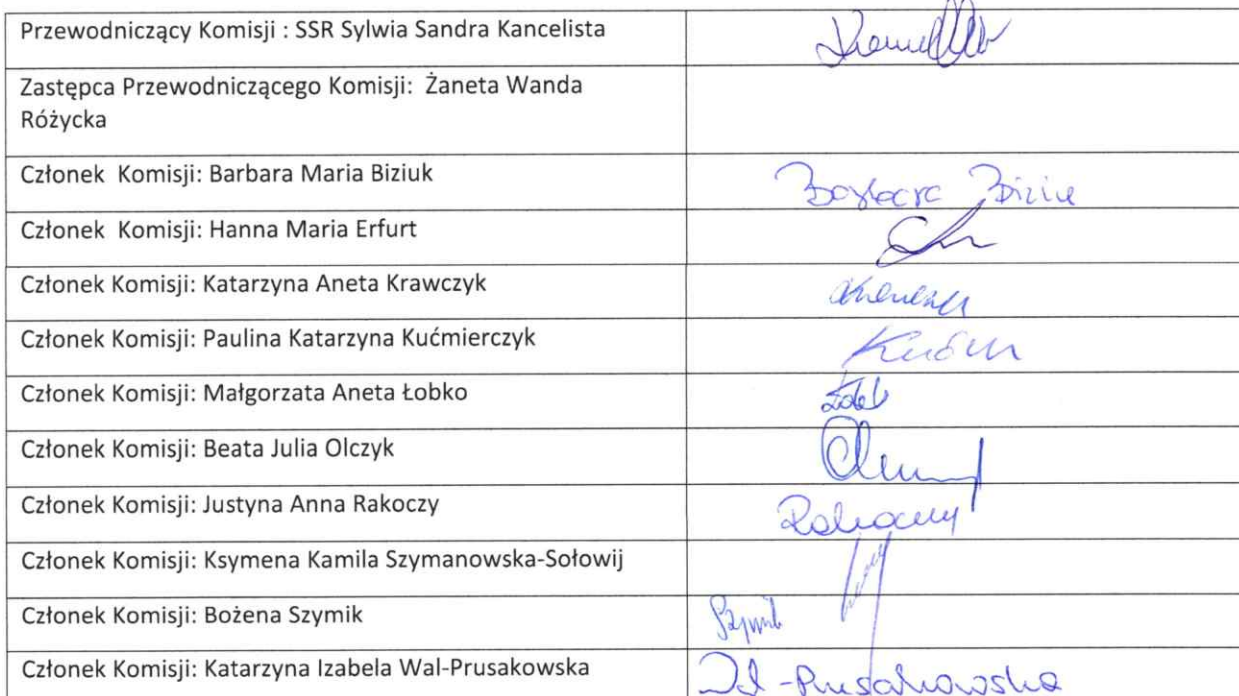 Przewodniczący Komisji : SSR Sylwia Sandra Kancelista
Zastępca Przewodniczącego Komisji: Żaneta Wanda
Różycka
Członek Komisji: Barbara Maria Biziuk
Barbara
Członek Komisji: Hanna Maria Erfurt
Członek Komisji: Katarzyna Aneta Krawczyk
Członek Komisji: Paulina Katarzyna Kućmierczyk
Członek Komisji: Małgorzata Aneta Łobko
Członek Komisji: Beata Julia Olczyk
Członek Komisji: Justyna Anna Rakoczy
Rakoczy
Członek Komisji: Ksymena Kamila Szymanowska-Sołowij
Członek Komisji: Bożena Szymik
Szymik
Członek Komisji: Katarzyna Izabela Wal-Prusakowska
-Prusakowska